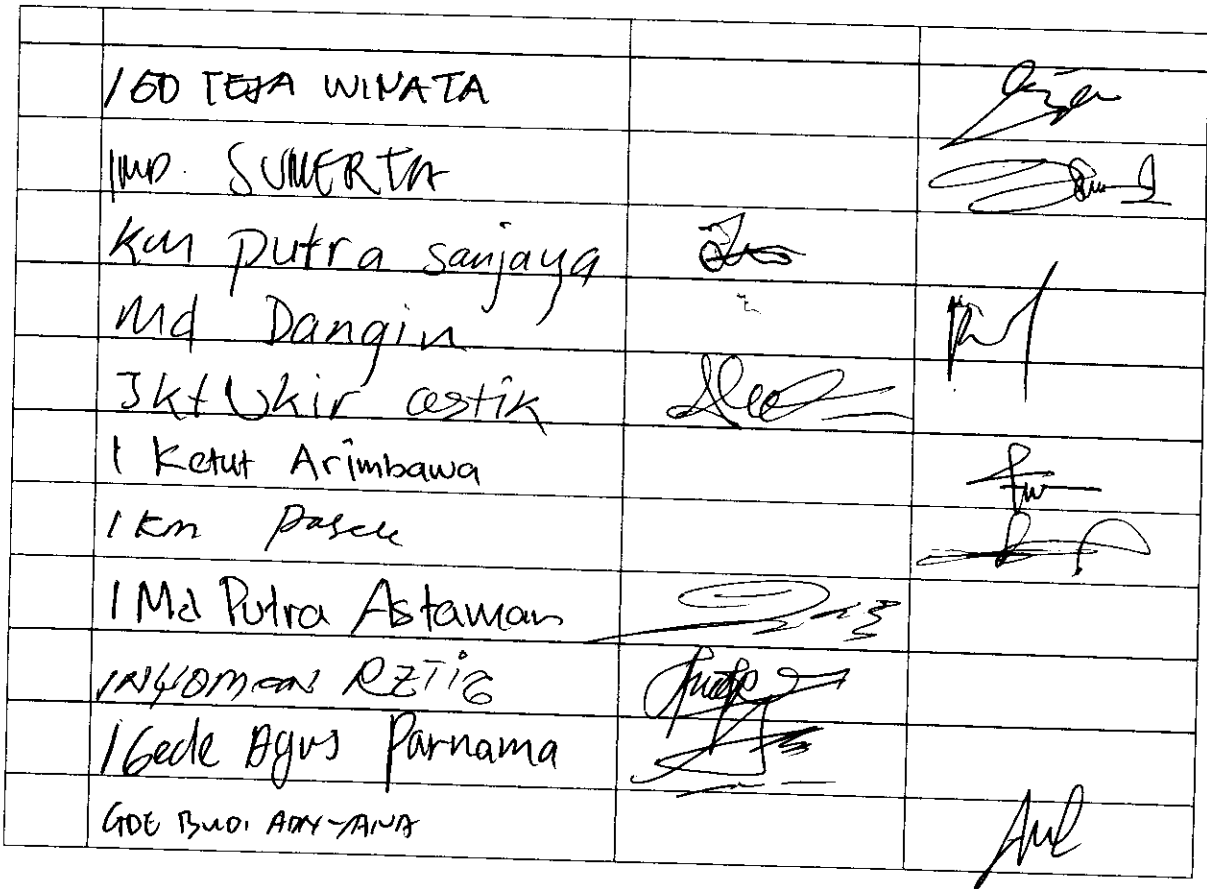 I GD TEJA WINATA
I MD. SUMERTA
Km putra sanjaya
Md Dangin
I kt Ukir cestik
I Ketut Arimbawa
I Km Pasek
I Md Putra Astaman
I NYOMAN
I Gede Agus Parnama
GDE BUDI ADNYANA